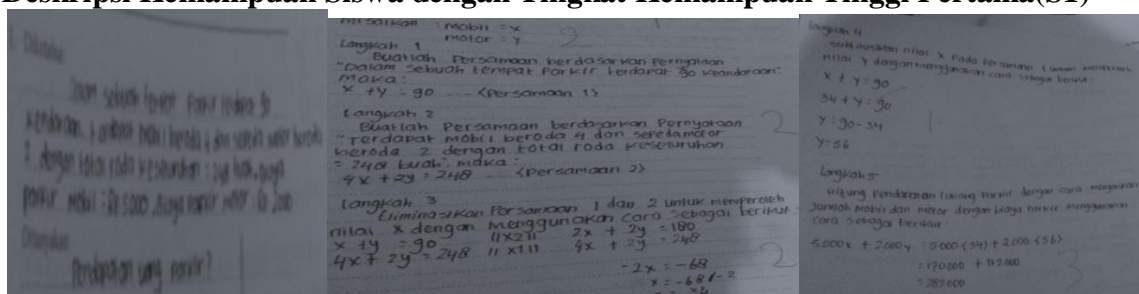 Deskripsi Kemampuan Siswa dengan Tingkat Kemampuan Tinggi Pertama(S1)
Diketahui
Dalam sebuah tempat Parkir terdapat 90
kendaraan, terdapat mobil beroda 4 dan sepeda motor beroda
2 dengan total roda keseluruhan : 248 buah, biaya
parkir mobil : Rp 5000, biaya parkir motor : Rp 2000
Ditanyakan
Pendapatan uang parkir?
misalkan : mobil = x
motor = y
2
Langkah 1
Buatlah Persamaan berdasarkan Pernyataan
"Dalam sebuah tempat Parkir terdapat 90 keandaraan"
maka :
x + y = 90 ---- <Persamaan 1>
Langkah 2
Buatlah Persamaan berdasarkan Pernyataan
"Terdapat mobil beroda 4 dan sepedamotor
beroda 2 dengan total roda keseluruhan
= 248 buah" maka :
2
4x + 2y = 248 ---- <Persamaan 2>
Langkah 3
Eliminasikan Persamaan 1 dan 2 untuk memperoleh
nilai x dengan menggunakan cara sebagai berikut
x + y = 90 11x211 2x + 2y = 180
4x + 2y = 248 11 x1 11 4x + 2y = 248
-2x = -68
x = -68/-2
2
Langkah 4
nilai x Pada Persamaan 1 untuk
nilai y dengan menggunakan cara sebagai berikut
x + y = 90
34 + y = 90
y = 90 - 34
y = 56
1
Langkah 5
Hitung Pendapatan Parkir dengan cara
Jumlah mobil dan motor dengan biaya parkir menggunakan
cara sebagai berikut
5.000x + 2.000y = 5.000 <34> + 2.000 <56>
= 170.000 + 112.000
= 282.000
3